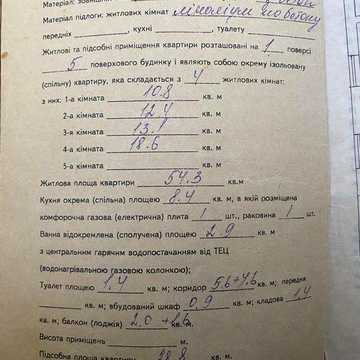 Матеріал:
Матеріал підлоги: житлових кімнат лінолеум по бетону
передніх , кухні , туалету
Житлові та підсобні приміщення квартири розташовані на 1 поверсі
5 поверхового будинку і являють собою окрему ізольовану
(спільну) квартиру, яка складається з 4 житлових кімнат:
з них: 1-а кімната 10.8 кв. м
2-а кімната 12.4 кв. м
3-я кімната 13.1 кв. м
4-а кімната 18.6 кв. м
5-а кімната кв. м
Житлова площа квартири 54.3 кв.м
Кухня окрема (спільна) площею 8.4 кв. м, в якій розміщена
комфорочна газова (електрична) плита 1 шт., раковина 1 шт.
Ванна відокремлена (сполучена) площею 2.9 кв. м
з центральним гарячим водопостачанням від ТЕЦ
(водонагрівальною газовою колонкою);
Туалет площею 1.4 кв. м; коридор 5.6+7.6 кв. м; передня
кв. м; вбудований шкаф 0.9 кв. м; кладова 1.4
кв. м, балкон (лоджія) 2.0 кв. м.
Висота приміщень м.
Підсобна площа 28.8 кв. м